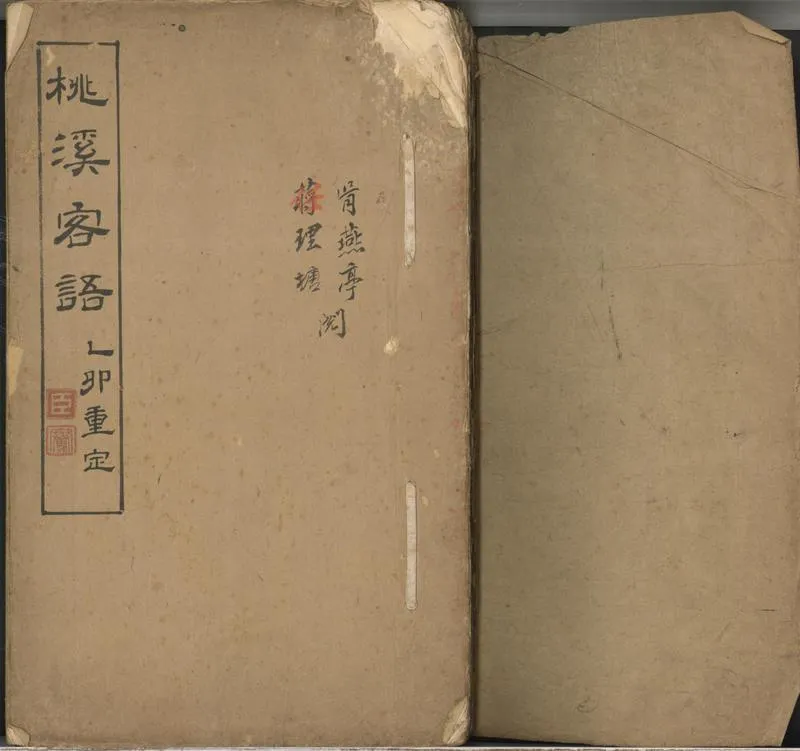 桃溪客語
乙卯重定
臣
燕亭
蔣理塘
閱